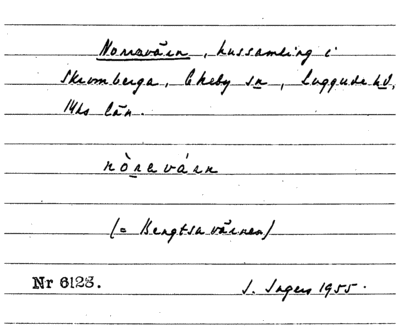 Norravärn, hussamling i
Skromberga, Ekeby sn, Luggude hd,
Mhs län.
nòravárn
(= Bengtsavärnen)
Nr 6128.
S. Ingers 1955.